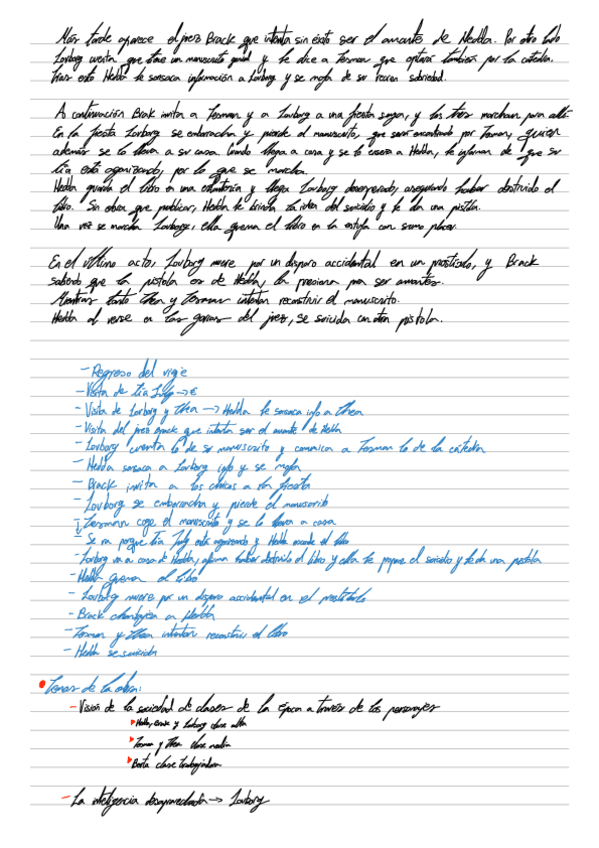 Más tarde aparece el juez Brack que intenta sin éxito ser el amante de Hedda. Por otro lado
Lovborg cuenta que tiene un manuscrito genial y le dice a Tesman que optará también por la cátedra.
Tras esto Hedda le sonsaca información a Lovborg y se mofa de su recien sobriedad.
A continuación Brak invita a Tesman y a Lovborg a una fiesta suya, y los tres marchan para allí
En la fiesta Lovborg se emborracha y pierde el manuscrito, que será encontrado por Tesman, quien
además se lo lleva a su casa. Cuando llega a casa y se lo enseña a Hedda, le informan de que su
tía está agonizando, por lo que se marcha.
Hedda guarda el libro en una estantería y llega Lovborg desesperado, asegurando haber destruido el
libro. Sin obra que publicar, Hedda le brinda la idea del suicidio y le da una pistola.
Una vez se marcha Lovborg, ella quema el libro en la estufa con sumo placer.
En el último acto, Lovborg muere por un disparo accidental en un prostíbulo, y Brack
sabiendo que la pistola es de Hedda, la presiona para ser amantes.
Mientras tanto Thea y Tesman intentan reconstruir el manuscrito.
Hedda al verse en las garras del juez, se suicida con otra pistola.
- Regreso del viaje
- Visita de tía July → €
- Visita de Lovborg y Thea → Hedda le sonsaca info a Thea
- Visita del juez Brack que intenta ser el amante de Hedda
- Lovborg cuenta lo de su manuscrito y comunica a Tesman lo de la cátedra
- Hedda sonsaca a Lovborg info y se mofa
- Brack invita a los chicos a la fiesta
- Lovborg se emborracha y pierde el manuscrito
- Tesman coge el manuscrito y se lo lleva a casa
- Se va porque tía July está agonizando y Hedda esconde el libro
- Lovborg va a casa de Hedda, afirma haber destruido el libro y ella le propone el suicidio y le da una pistola
- Hedda quema el libro
- Lovborg muere por un disparo accidental en el prostíbulo
- Brack chantajea a Hedda
- Tesman y Thea intentan reconstruir el libro
- Hedda se suicida
• Temas de la obra:
- Visión de la sociedad de clases de la época a través de los personajes
▸ Hedda, Brack y Lovborg clase alta
▸ Tesman y Thea clase media
▸ Berta clase trabajadora
- La inteligencia desaprovechada → Lovborg